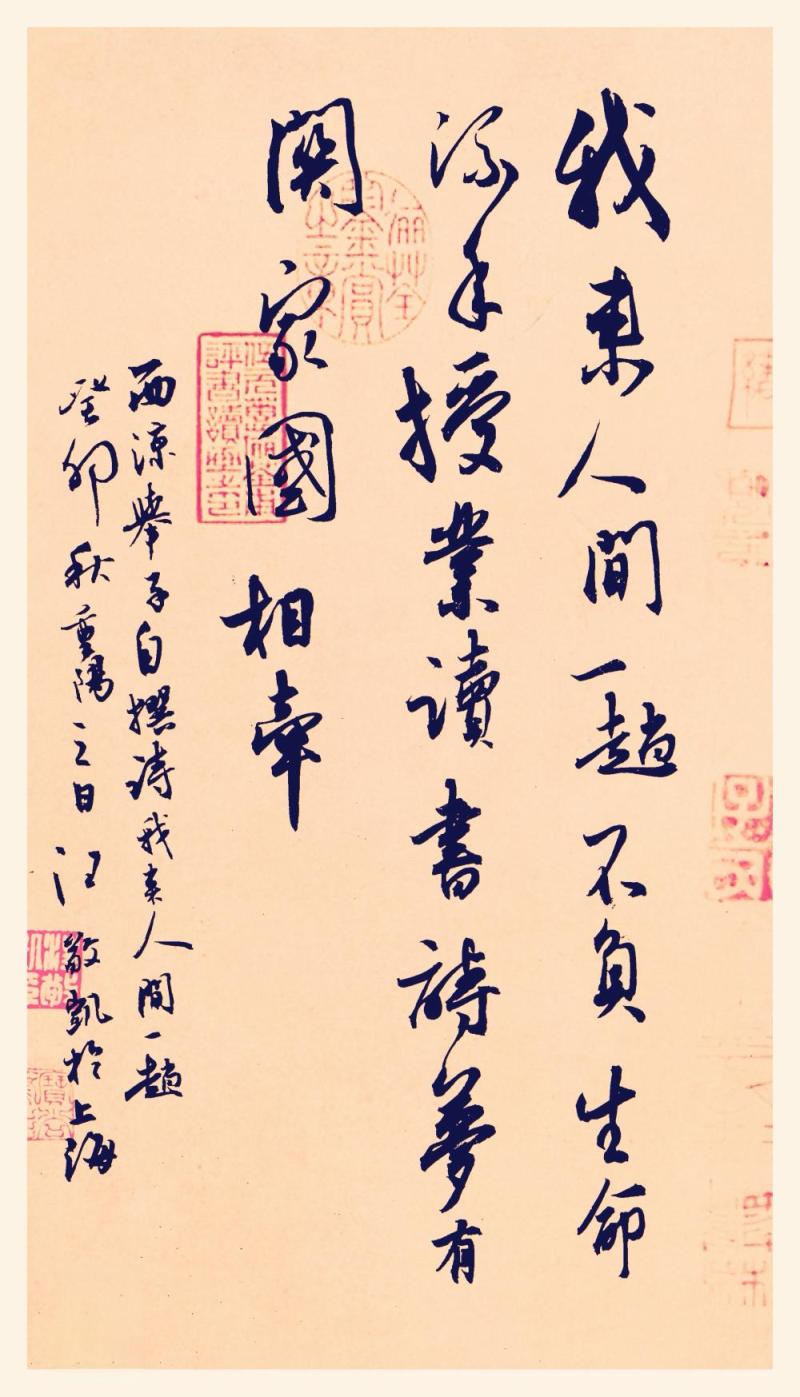 我來人間一趟不負生命
流年授業讀書詩夢有
關家國相牽
西涼舉子自撰詩我來人間一趟
癸卯秋重陽三日汪敬凱於上海